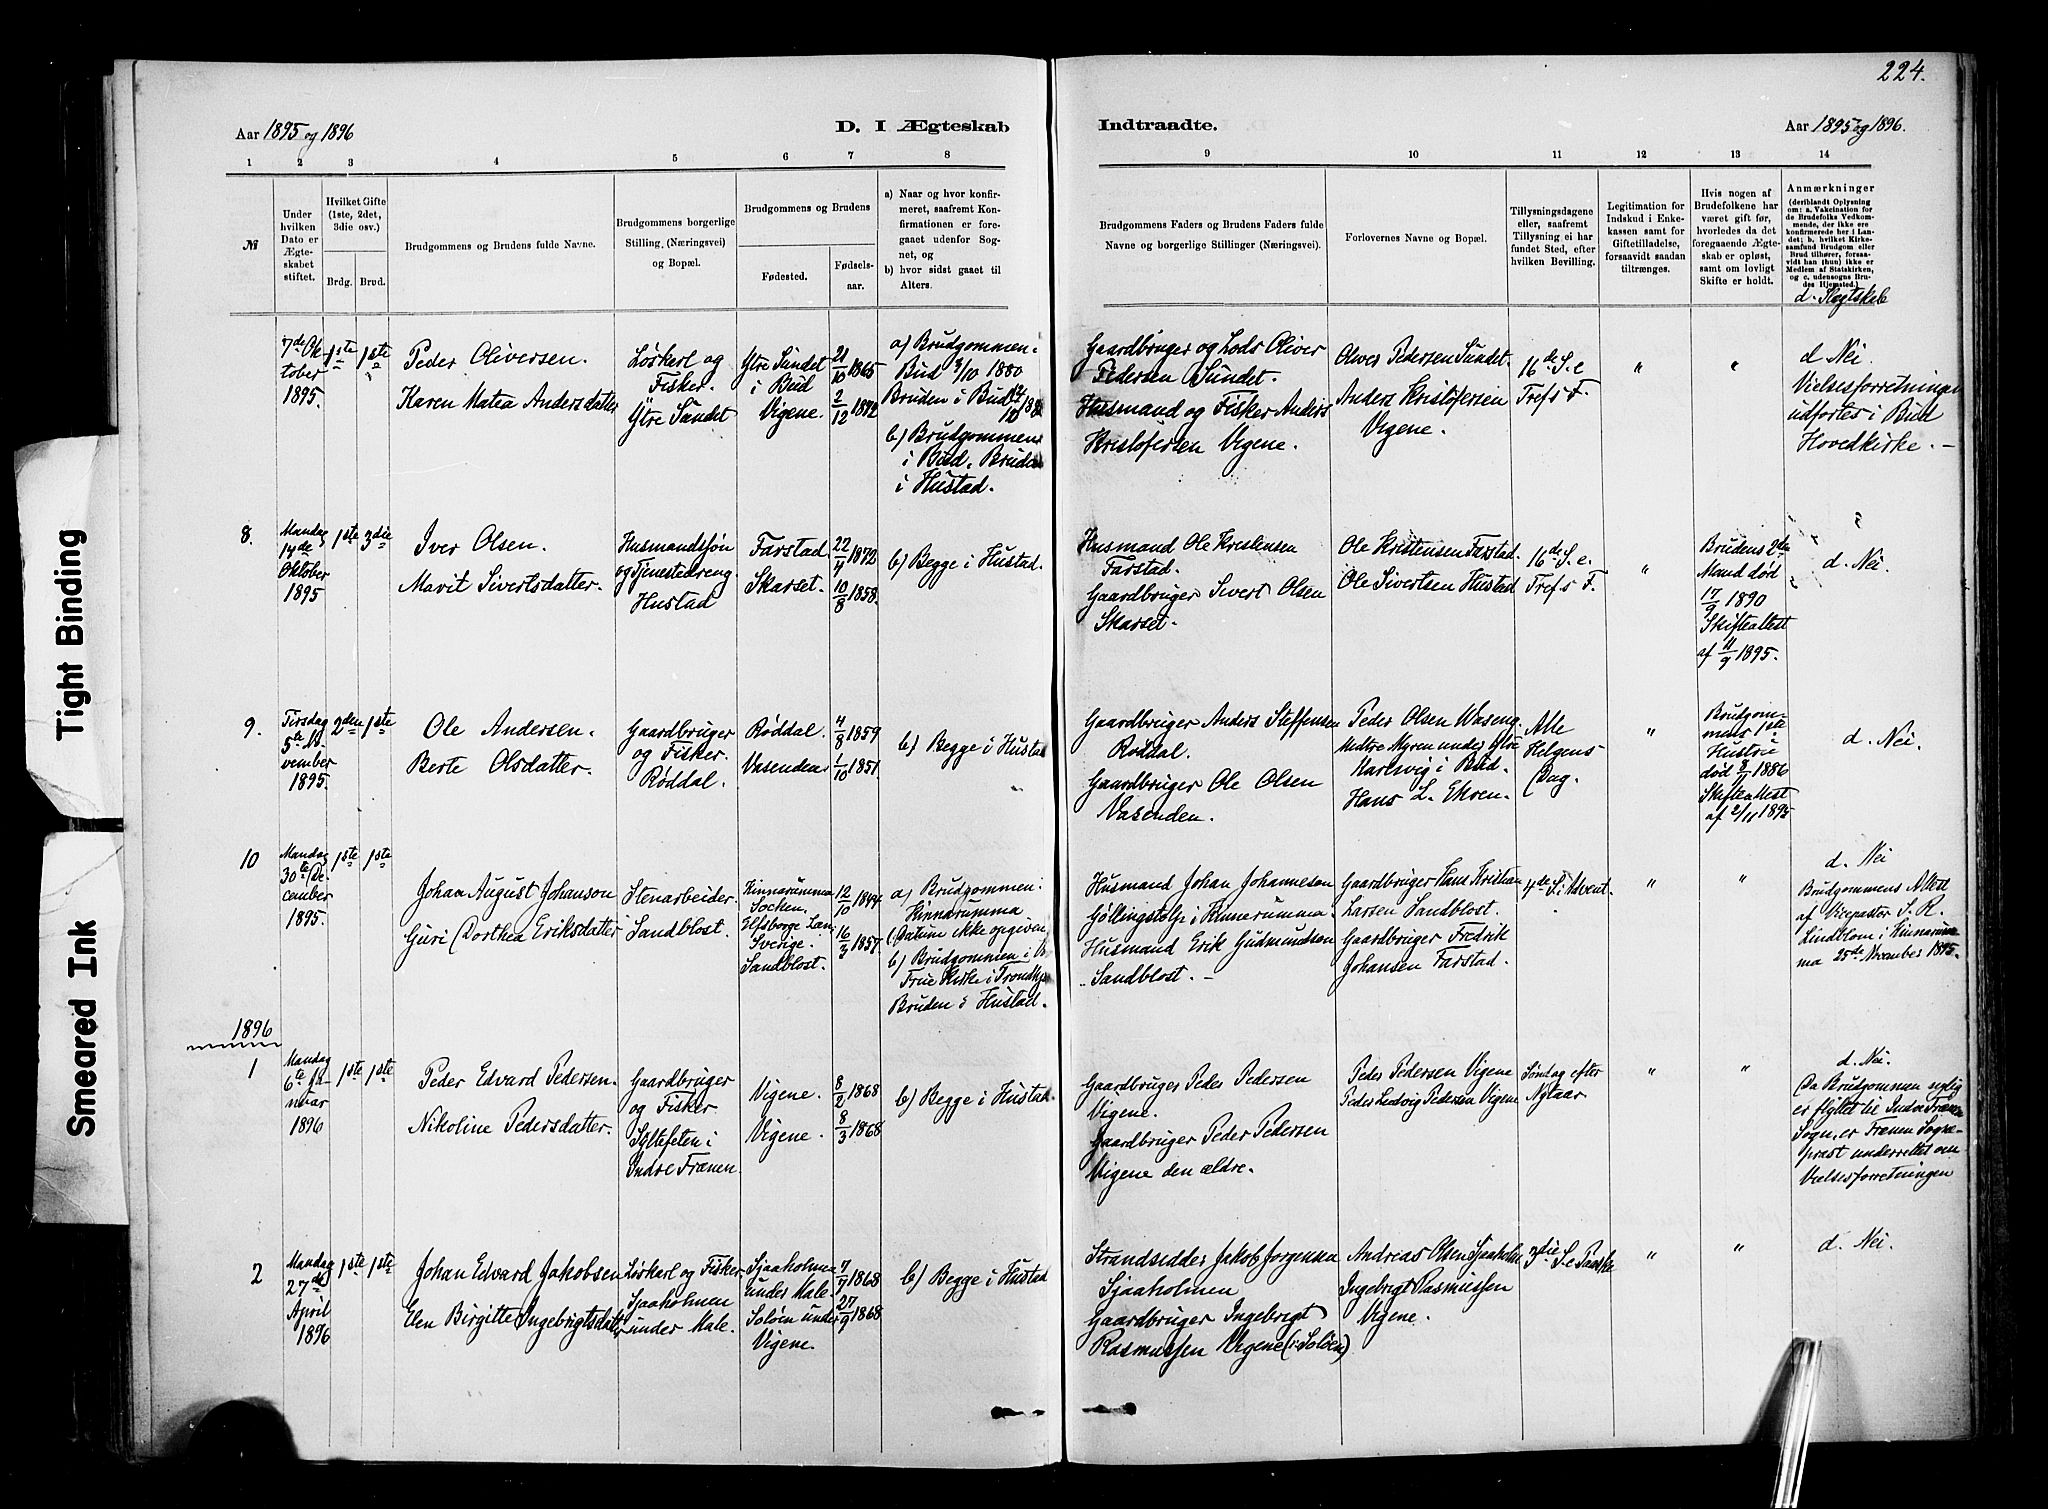 224.
Aar 1895 og 1896
D. I Ægteskab
Indtraadte.
Aar 1895 og 1896.
1 2 3 4 5 6 7 8 9 10 11 12 13 14
№
Under
hvilken
Dato er
Ægte-
skabet
stiftet.
Hvilket Gifte
(1ste, 2det,
3die osv.)
Brdg. Brud.
Brudgommens og Brudens fulde Navne.
Brudgommens borgerlige
Stilling, (Næringsvei)
og Bopæl.
Brudgommens og Brudens
Fødested.
Fødsels-
aar.
a) Naar og hvor konfir-
meret, saafremt Kon-
firmationen er fore-
gaaet udenfor Sog-
net, og
b) hvor sidst gaaet til
Alters.
Brudgommens Faders og Brudens Faders fulde
Navne og borgerlige Stillinger (Næringsvei).
Forlovernes Navne og Bopæl.
Tillysningsdagene
eller, saafremt
Tillysning ei har
fundet Sted, efter
hvilken Bevilling.
Legitimation for
Indskud i Enke-
kassen samt for
Giftetilladelse,
forsaavidt saadan
tiltrænges.
Hvis nogen af
Brudefolkene har
været gift før,
hvorledes da det
foregaaende Ægte-
skab er opløst,
samt om lovligt
Skifte er holdt.
Anmærkninger
(deriblandt Oplysning
om: a. Vakcination for
de Brudefolks Vedkom-
mende, der ikke ere
konfirmerede her i Lan-
det; b. hvilket Kirke-
samfund Brudgom eller
Brud tilhører, forsaa-
vidt han (hun) ikke er
Medlem af Statskirken,
og c. udensogns Bru-
des Hjemsted.)
d. Slegtskab
7de Ok-
tober
1895.
1ste 1ste
Peder Oliversen.
Karen Matea Andersdatter
Løskarl og
Fisker.
Ytre Sundet
Ytre Sundet
i Bud
Vigene.
21/10 1865
2/12 1872
a) Brudgommen i
Bud 3/10 1880
Bruden i Bud
b) Brudgommen
i Bud. Bruden
i Hustad.
Gaardbruger og Lods Oliver
Pedersen Sundet.
Husmand og Fisker Anders
Kristofersen Vigene.
Oliver Pedersen Sundet.
Anders Kristofersen
Vigene.
16de S. e
Tref s F.
"
"
d Nei.
Vielsesforretningen
udførtes i Bud
Hovedkirke. —
8.
Mandag
14de
Oktober
1895
1ste 3die
Iver Olsen.
Marit Sivertsdatter.
Husmandssøn
og Tjenestedreng
Hustad
Farstad.
Skarset.
22/4 1872
10/8 1858.
b) Begge i Hustad.
Husmand Ole Kristensen
Farstad.
Gaardbruger Sivert Olsen
Skarset.
Ole Kristensen Farstad.
Ole Sivertsen Hustad
16de S. e.
Tref s F.
"
Brudens 2den
Mand død
17/9 1890
Skifteattest
af 11/9 1895.
d. Nei.
9.
Tirsdag
5te No-
vember
1895.
2den 1ste
Ole Andersen.
Berte Olsdatter.
Gaardbruger
og Fisker.
Røddal.
Røddal.
Vasenden
4/8 1859
1/10 1851
b) Begge i Hustad
Gaardbruger Anders Steffensen
Røddal.
Gaardbruger Ole Olsen
Vasenden.
Peder Olsen Waseng
Nedre Myren under Ytre
Harlsvig i Bud.
Hans L. Ekren.
Alle
Helgens
Dag.
"
Brudgom-
mens 1ste
Hustru
død 8/1 1886
Skifteattest
af 2/11 1895
d. Nei.
10
Mandag
30te De-
cember
1895.
1ste 1ste
Johan August Johanson
Guri Dorthea Eriksdatter
Stenarbeider
Sandblost.
Kinnarumma
Socken.
Elfsborgs Län,
Sverige.
Sandblost.
12/10 1844
16/3 1857.
a) Brudgommen i
Kinnarumma
(Datum ikke opgiven
b) Brudgommen i V.
Frue Kirke i Trondhjem
Bruden i Hustad.
Husmand Johan Johannesen
Göllingstolp i Kinnerumma.
Husmand Erik Gudmundsen
Sandblost. —
Gaardbruger Hans Kristian
Larsen Sandblost.
Gaardbruger Fredrik
Johansen Farstad.
4de S. i Advent.
"
"
d. Nei
Brudgommens Attest
af Vicepastor S. R.
Lindblom i Kinnarum-
ma 25de November 1895.
1896
1
Mandag
6te Ja-
nuar
1896
1ste 1ste
Peder Edvard Pedersen.
Nikoline Pedersdatter.
Gaardbruger
og Fisker
Syltefeten i
Indre Frænen.
Vigene.
Vigene.
8/2 1868
8/3 1868
b) Begge i Hustad.
Gaardbruger Peder Pedersen
Vigene.
Gaardbruger Peder Pedersen
Vigene den ældre.
Peder Pedersen Vigene
Peder Ludvig Pedersen Vigene
Søndag efter
Nytaar
"
"
d. Nei.
Da Brudgommen nylig
er flyttet til Indre Frænen
Sogn, er Frænen Sogne-
præst underrettet om
Vielsesforretningen
2
Mandag
27de
April
1896
1ste 1ste
Johan Edvard Jakobsen
Elen Birgitte Ingebrigtsdatter
Løskarl og Fisker
Sjaaholmen
under Male.
Sjaaholmen
under Male.
Soløen under
Vigene.
7/7 1868
27/9 1868
b) Begge i Hustad
Strandsidder Jakob Jørgensen
Sjaaholmen
Gaardbruger Ingebrigt
Rasmussen Vigene (i Soløen)
Andreas Olsen Sjaaholm
Ingebrigt Rasmussen
Vigene.
3die S. e Paaske
"
"
d. Nei.
Tight Binding
Smeared Ink